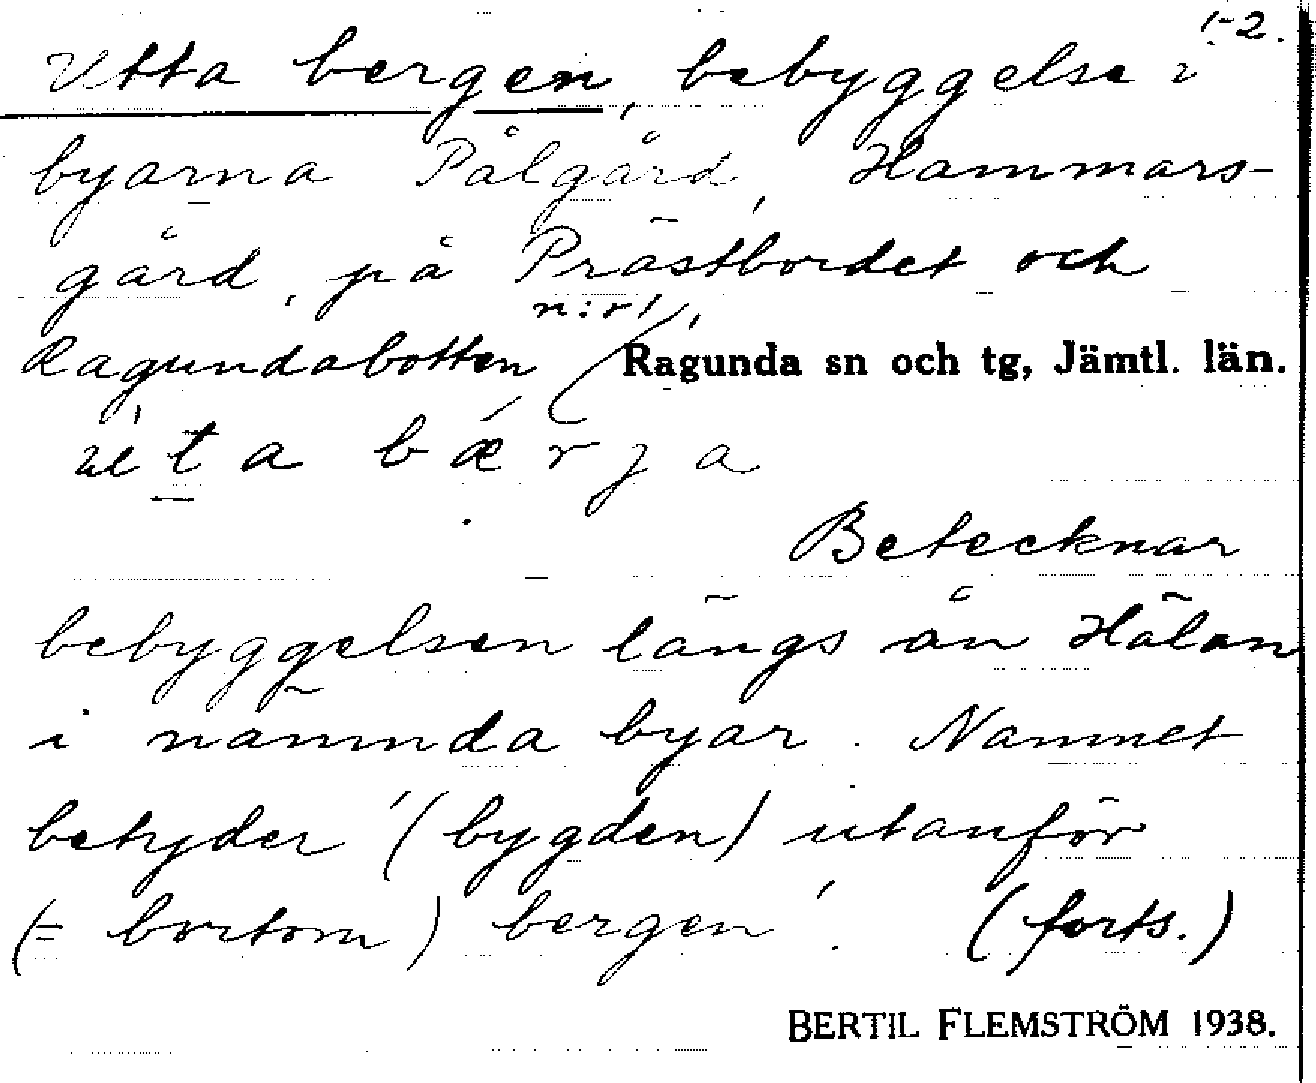 1-2.
Utta bergen, bebyggelse i
byarna Pålgård, Hammars-
gård, på Prästbordet och
n:r 1,
Ragundabotten / Ragunda sn och tg, Jämtl. län.
ut a bǽrja
Betecknar
bebyggelsen längs ån Hälan
i nämnda byar. Namnet
betyder '(bygden) utanför
(= bortom) bergen'. (forts.)
BERTIL FLEMSTRÖM 1938.